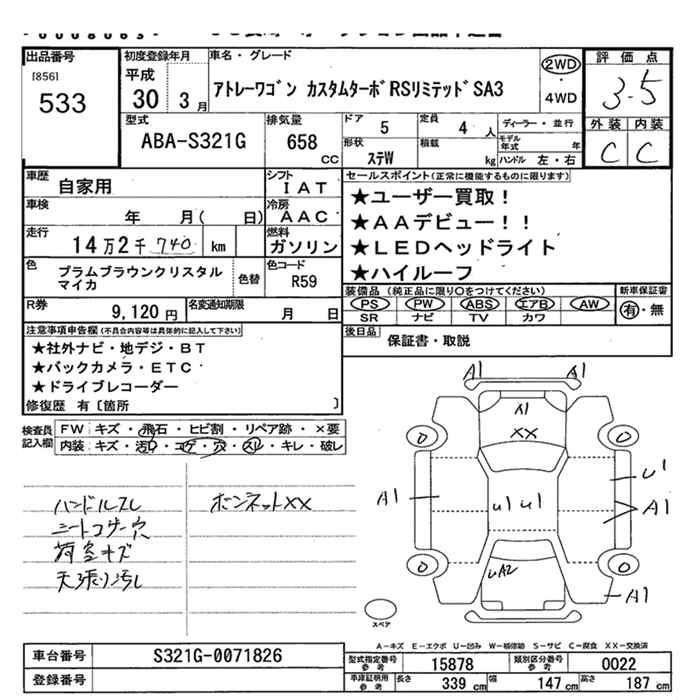 出品番号
[856]
533
初度登録年月
平成
30 3月
車名・グレード
アトレーワゴン カスタムターボRSリミテッド SA3
2WD
・
4WD
評価点
3.5
外装 内装
C C
型式
ABA-S321G
排気量
658 cc
ドア 5
定員 4人
ディーラー・並行
形状 ステW
積載 kg
モデル年式 年
ハンドル 左・右
車歴
自家用
シフト
IAT
車検
年 月( 日)
冷房
AAC
走行
14万2千740 km
燃料
ガソリン
色
プラムブラウンクリスタル
マイカ
色替
色コード
R59
R券
9,120円
名変通知期限
月 日
セールスポイント(正常に機能するものに限ります)
★ユーザー買取!
★AAデビュー!!
★LEDヘッドライト
★ハイルーフ
装備品(純正品に限り○をつけてください)
新車保証書
PS PW ABS エアB AW
SR ナビ TV カワ
有・無
後日品
保証書・取説
注意事項申告欄(不具合内容等は具体的に記入して下さい)
★社外ナビ・地デジ・BT
★バックカメラ・ETC
★ドライブレコーダー
修復歴 有〔箇所 〕
検査員
記入欄
FW キズ・飛石・ヒビ割・リペア跡・×要
内装 キズ・汚れ・コゲ・穴・スレ・キレ・破レ
ハンドルスレ
シートコゲ穴
荷室キズ
天張り汚レ
ボンネットXX
A1 A1
A1
XX
U1
A1 U1 U1 A1
UA2
A1
スペア
A-キズ E-エクボ U-凹み W-補修跡 S-サビ C-腐食 XX-交換済
車台番号
S321G-0071826
登録番号
型式指定番号
参考
15878
類別区分番号
参考
0022
車庫証明用
参考
長さ 339 cm
幅 147 cm
高さ 187 cm